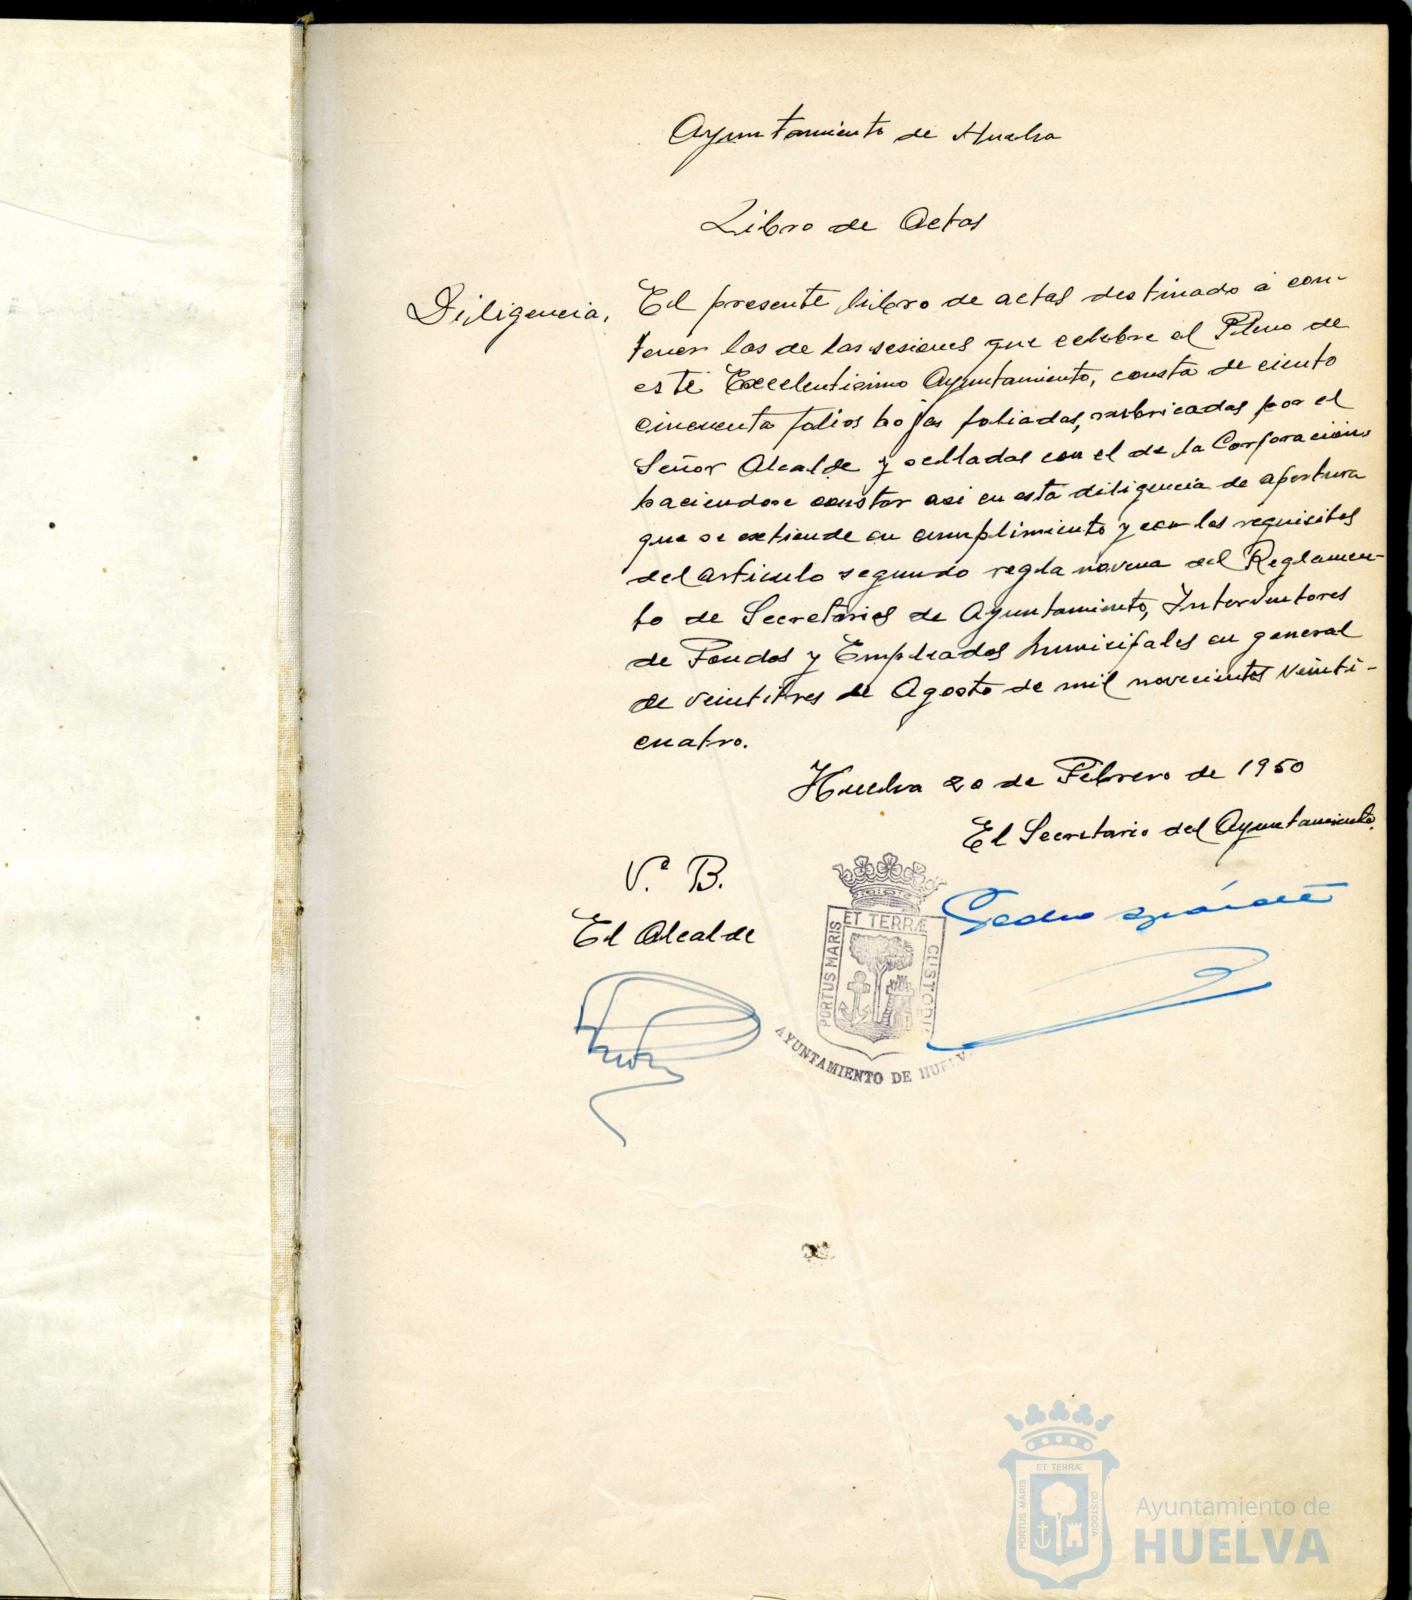 Ayuntamiento de Huelva
Libro de Actas
Diligencia.
El presente libro de actas destinado á con-
tener las de las sesiones que celebre el Pleno de
este Excelentisimo Ayuntamiento, consta de ciento
cincuenta folios hojas foliadas, rubricadas por el
Señor Alcalde y selladas con el de la Corporación
haciendose constar asi en esta diligencia de apertura
que se extiende en cumplimiento y con los requisitos
del articulo segundo regla novena del Reglamen-
to de Secretarios de Ayuntamiento, Interventores
de Fondos y Empleados Municipales en general
de veintitres de Agosto de mil novecientos veinti-
cuatro.
Huelva 20 de Febrero de 1950
El Secretario del Ayuntamiento.
V.º B.
El Alcalde
Pedro
PORTUS MARIS ET TERRÆ CUSTODIA
AYUNTAMIENTO DE HUELVA
PORTUS MARIS ET TERRÆ CUSTODIA
Ayuntamiento de
HUELVA